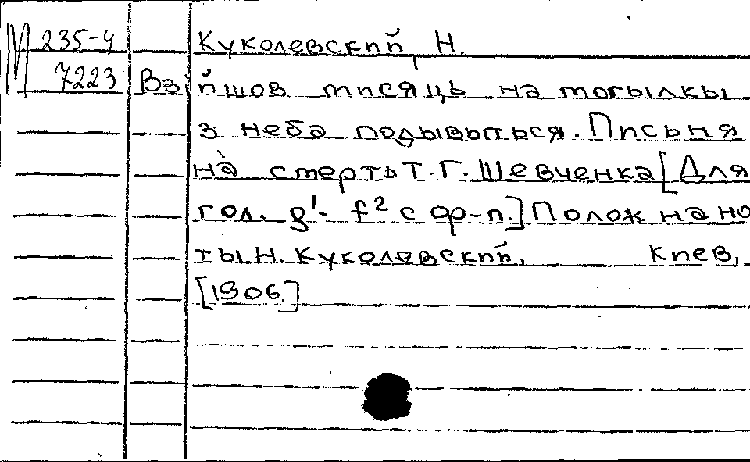 М 235-4 Куколевский, Н.
7223 Взійшов мисяць на могылкы
з неба подывыться. Писня
на смерть Т. Г. Шевченка [Для
гол. g¹- f² с ф-п.] Полож на но
ты Н. Куколевский, Киев,
[1906.]